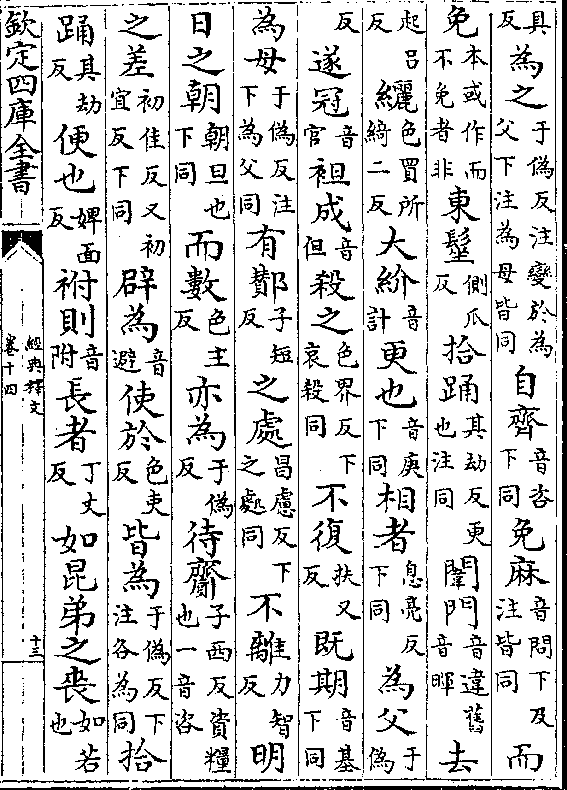 具反為之于偽反注變於為父下注為母皆同自齊音咨下同免麻音問下及注皆同而
免本或作而不免者非東髽側瓜反拾踊其劫反更也注同闈門音違舊音暉去
起呂反纚色買所綺二反大紒音計更也音庚下同相者息亮反下同為父于偽
反遂冠音官袒成音但殺之色界反下哀殺同不復扶又反既期音基下同
為母于偽反注下為父同有酇子短反之處昌慮反下之處同不離力智反明
日之朝朝旦也下同而數色主反亦為于偽反待齎子西反資糧也一音咨
之差初佳反又初宜反下同辟為音避使於色吏反皆為于偽反下注各為同拾
踊其劫反便也婢面反祔則音附長者丁丈反如昆弟之喪如若也
欽定四庫全書
經典釋文
卷十四
十三